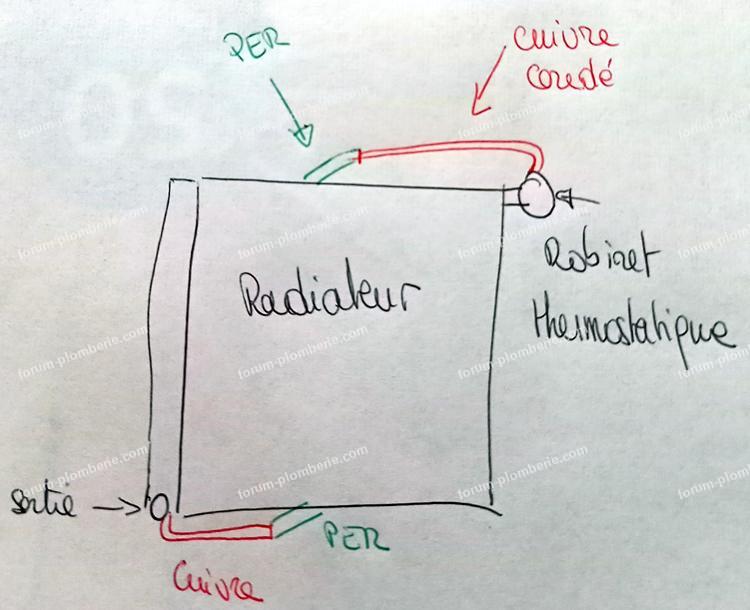 PER
cuivre
coudé
Radiateur
Robinet
thermostatique
sortie
PER
Cuivre
forum-plomberie.com